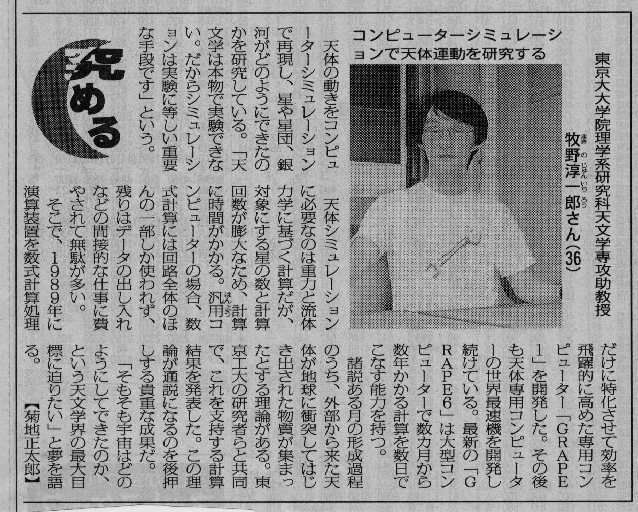 東京大大学院理学系研究科天文学専攻助教授
まきのじゅんいちろう
牧野淳一郎さん(36)
コンピューターシミュレーシ
ョンで天体運動を研究する
究める
天体の動きをコンピュ
ーターシミュレーション
で再現し、星や星団、銀
河がどのようにできたの
かを研究している。「天
文学は本物で実験できな
い。だからシミュレーシ
ョンは実験に等しい重要
な手段です」という。
天体シミュレーション
に必要なのは重力と流体
力学に基づく計算だが、
対象にする星の数と計算
回数が膨大なため、計算
に時間がかかる。汎用コ
ンピューターの場合、数
式計算には回路全体のほ
んの一部しか使われず、
残りはデータの出し入れ
などの間接的な仕事に費
やされて無駄が多い。
そこで、1989年に
演算装置を数式計算処理
だけに特化させて効率を
飛躍的に高めた専用コン
ピューター「GRAPE
1」を開発した。その後
も天体専用コンピュータ
ーの世界最速機を開発し
続けている。最新の「G
RAPE6」は大型コン
ピューターで数カ月から
数年かかる計算を数日で
こなす能力を持つ。
諸説ある月の形成過程
のうち、外部から来た天
体が地球に衝突してはじ
き出された物質が集まっ
たとする理論がある。東
京工大の研究者らと共同
で、これを支持する計算
結果を発表した。この理
論が通説になるのを後押
しする貴重な成果だ。
「そもそも宇宙はどの
ようにしてできたのか、
という天文学界の最大目
標に迫りたい」と夢を語
る。【菊地正太郎】